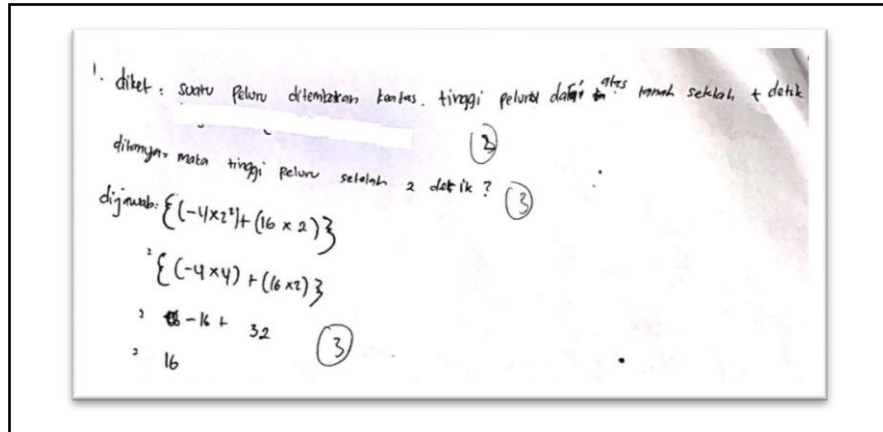 1. diket : suatu peluru ditembakan keatas. tinggi peluru dari atas tanah setelah t detik
2
ditanya = maka tinggi peluru setelah 2 detik ?
3
dijawab : {(-4x2²)+(16 x 2)}
= {(-4x4) + (16 x2)}
= -16 + 32
3
= 16